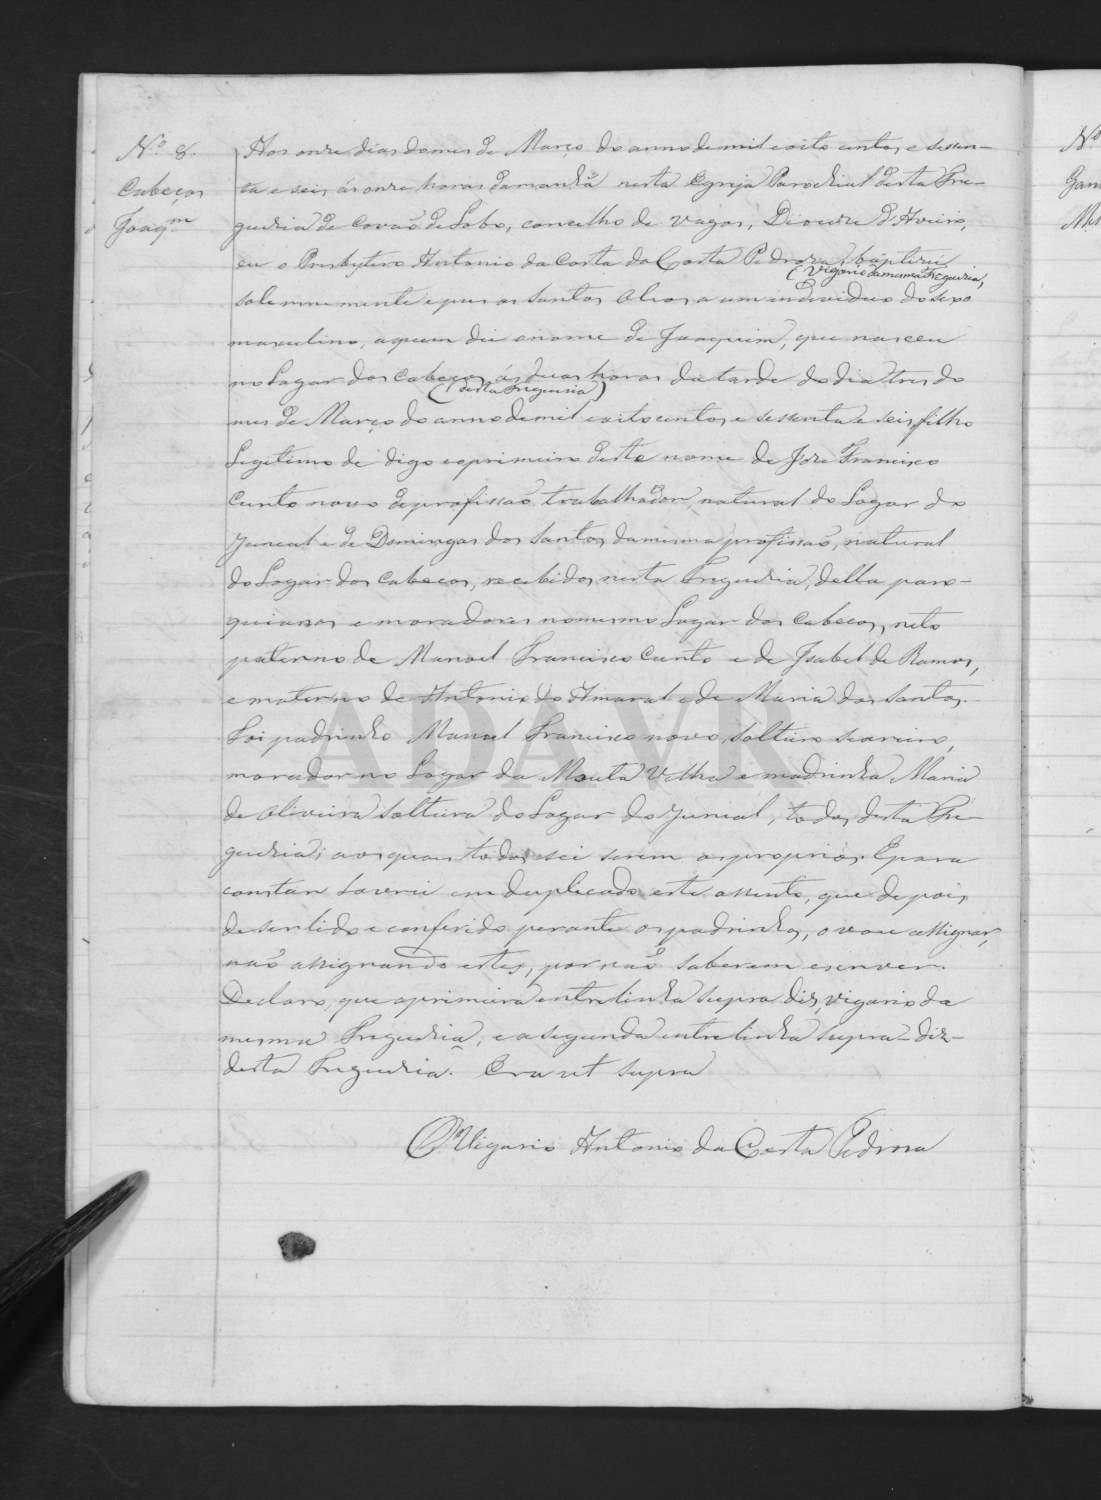 Nº 8.
Cabeços
Joaqm
Aos onze dias do mes de Março do anno de mil e oito centos e sessen-
ta e seis ás onze horas da manhã nesta Egreja Parochial desta Fre-
guezia de Covaõ de Lobo, concelho de Vagos, Diocese d'Aveiro,
eu o Presbytero Antonio da Costa da Costa Pedroza, baptizei
(Vigario da mesma Freguezia,
solemnemente e puz os Santos Oleos a um individuo do sexo
masculino, a quem dei o nome de Joaquim, que nasceu
no Lugar dos Cabeços ás duas horas da tarde do dia tres do
(desta Freguezia)
mes de Março do anno de mil e oito centos e sessenta e seis, filho
Legitimo de digo e o primeiro deste nome de Jose Francisco
Cunto novo de profissaõ trabalhador, natural do Lugar do
Juncal e de Domingas dos Santos da mesma profissaõ, natural
do Lugar dos Cabeços, recebidos nesta Freguezia, della paro-
quianos e moradores no mesmo Lugar dos Cabeços, neto
paterno de Manoel Francisco Cunto e de Isabel de Ramos,
e materno de Antonio do Amaral e de Maria dos Santos.
Foi padrinho Manoel Francisco novo, solteiro seareiro,
morador no Lugar da Mouta Velha e madrinha Maria
de Oliveira solteira do Lugar do Juncal, todos desta Fre-
guezia; aos quaes todos sei serem os proprios. E para
constar lavrei em duplicado este assento, que depois
de ser lido e conferido perante os padrinhos, o vou assignar,
naõ assignando estes, por naõ saberem escrever.
Declaro, que a primeira entrelinha supra diz, vigario da
mesma Freguezia, e a segunda entrelinha supra - diz -
desta Freguezia. Era ut supra
O Vigario Antonio da Costa Pedroza
ADAVR
Nº